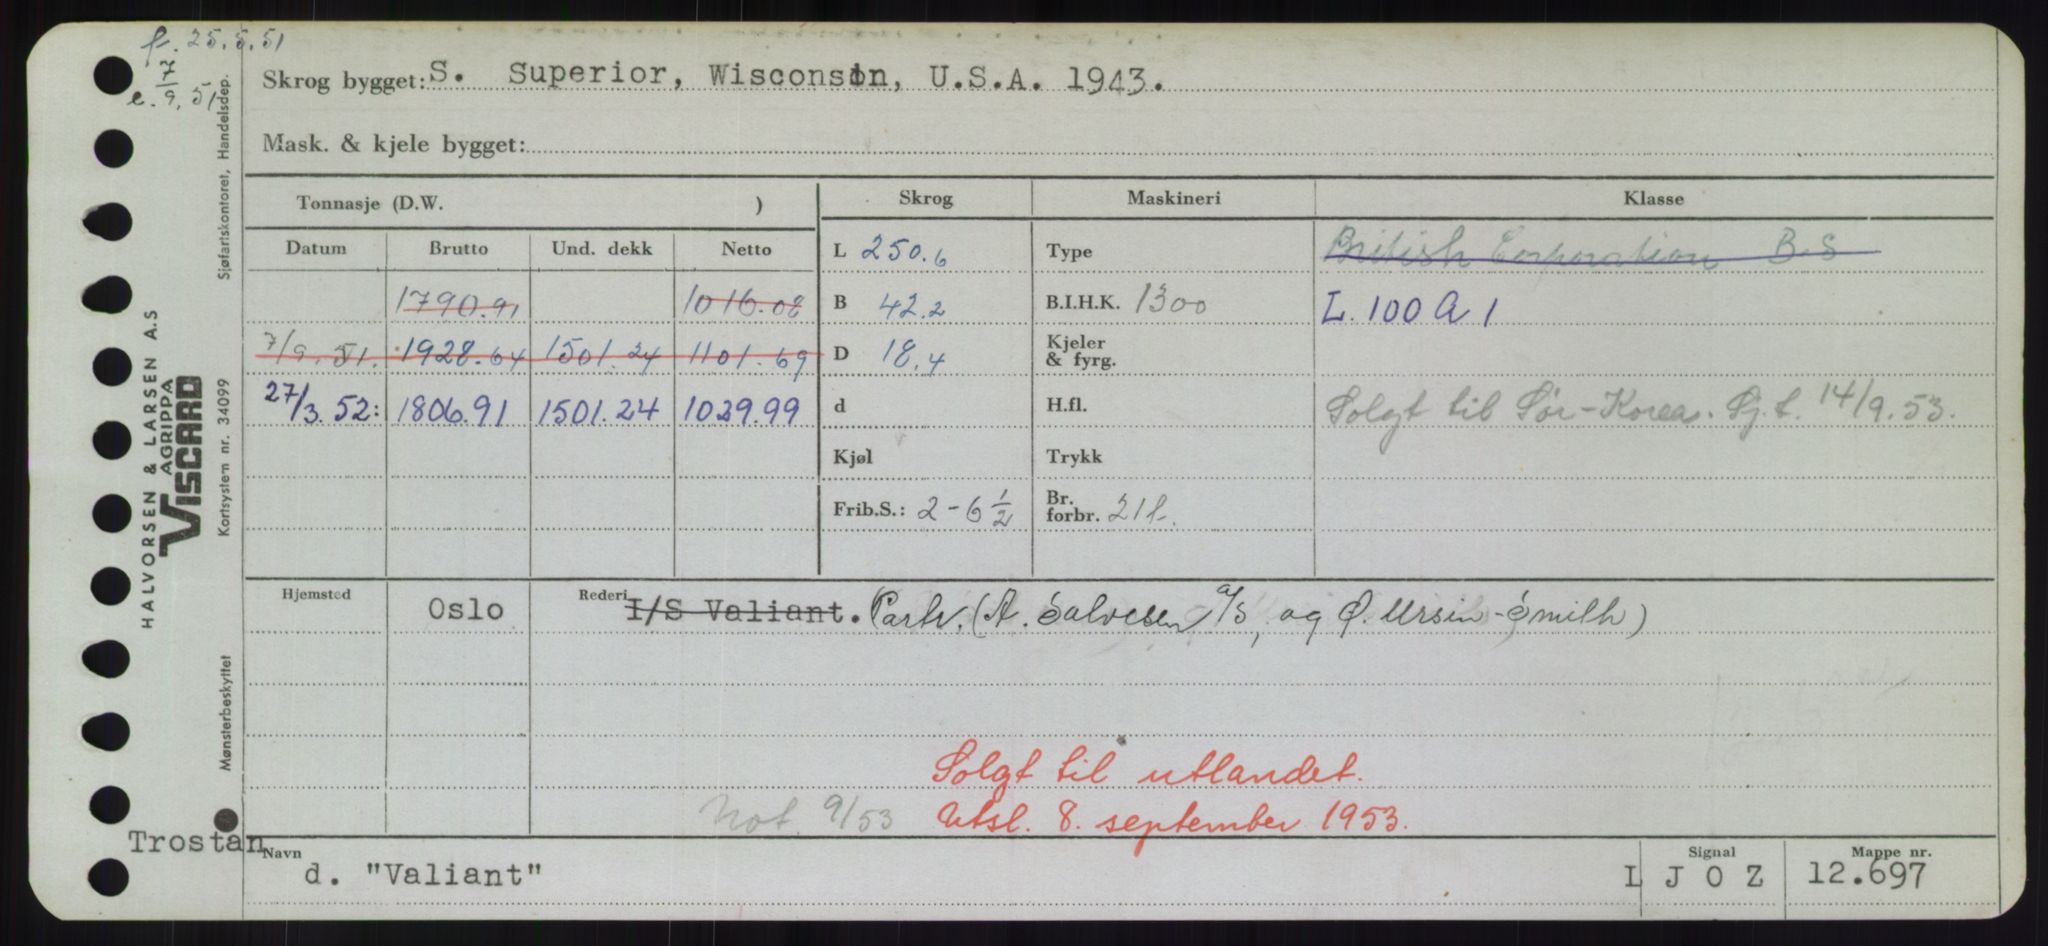 f. 25.5.51
e. 7/9.51
Skrog bygget: S. Superior, Wisconsin, U.S.A. 1943.
Mask. & kjele bygget:
Tonnasje (D.W. )
Skrog Maskineri Klasse
Datum Brutto Und. dekk Netto
L 250.6 Type British Corporation B.S
1790.91 1016.08
B 42.2 B.I.H.K. 1300 L. 100 A 1
7/9.51. 1928.64 1501.24 1101.69
D 18.4 Kjeler & fyrg.
27/3.52: 1806.91 1501.24 1029.99
d H.fl. Solgt til Sør-Korea. Sj.t. 14/9.53.
Kjøl Trykk
Frib.S.: 2-6 1/2 Br. forbr. 21 f.
Hjemsted Oslo Rederi I/S Valiant. Partr. (A. Salvesen A/S, og Ø. Ursin-Smith)
Solgt til utlandet.
Not. 9/53 Utsl. 8. september 1953.
Trostan
Navn d. "Valiant"
Signal L J O Z
Mappe nr. 12.697
HALVORSEN & LARSEN A.S
AGRIPPA
VISCARD
Sjøfartskontoret, Handelsdep.
Kortsystem nr. 34099
Mønsterbeskyttet